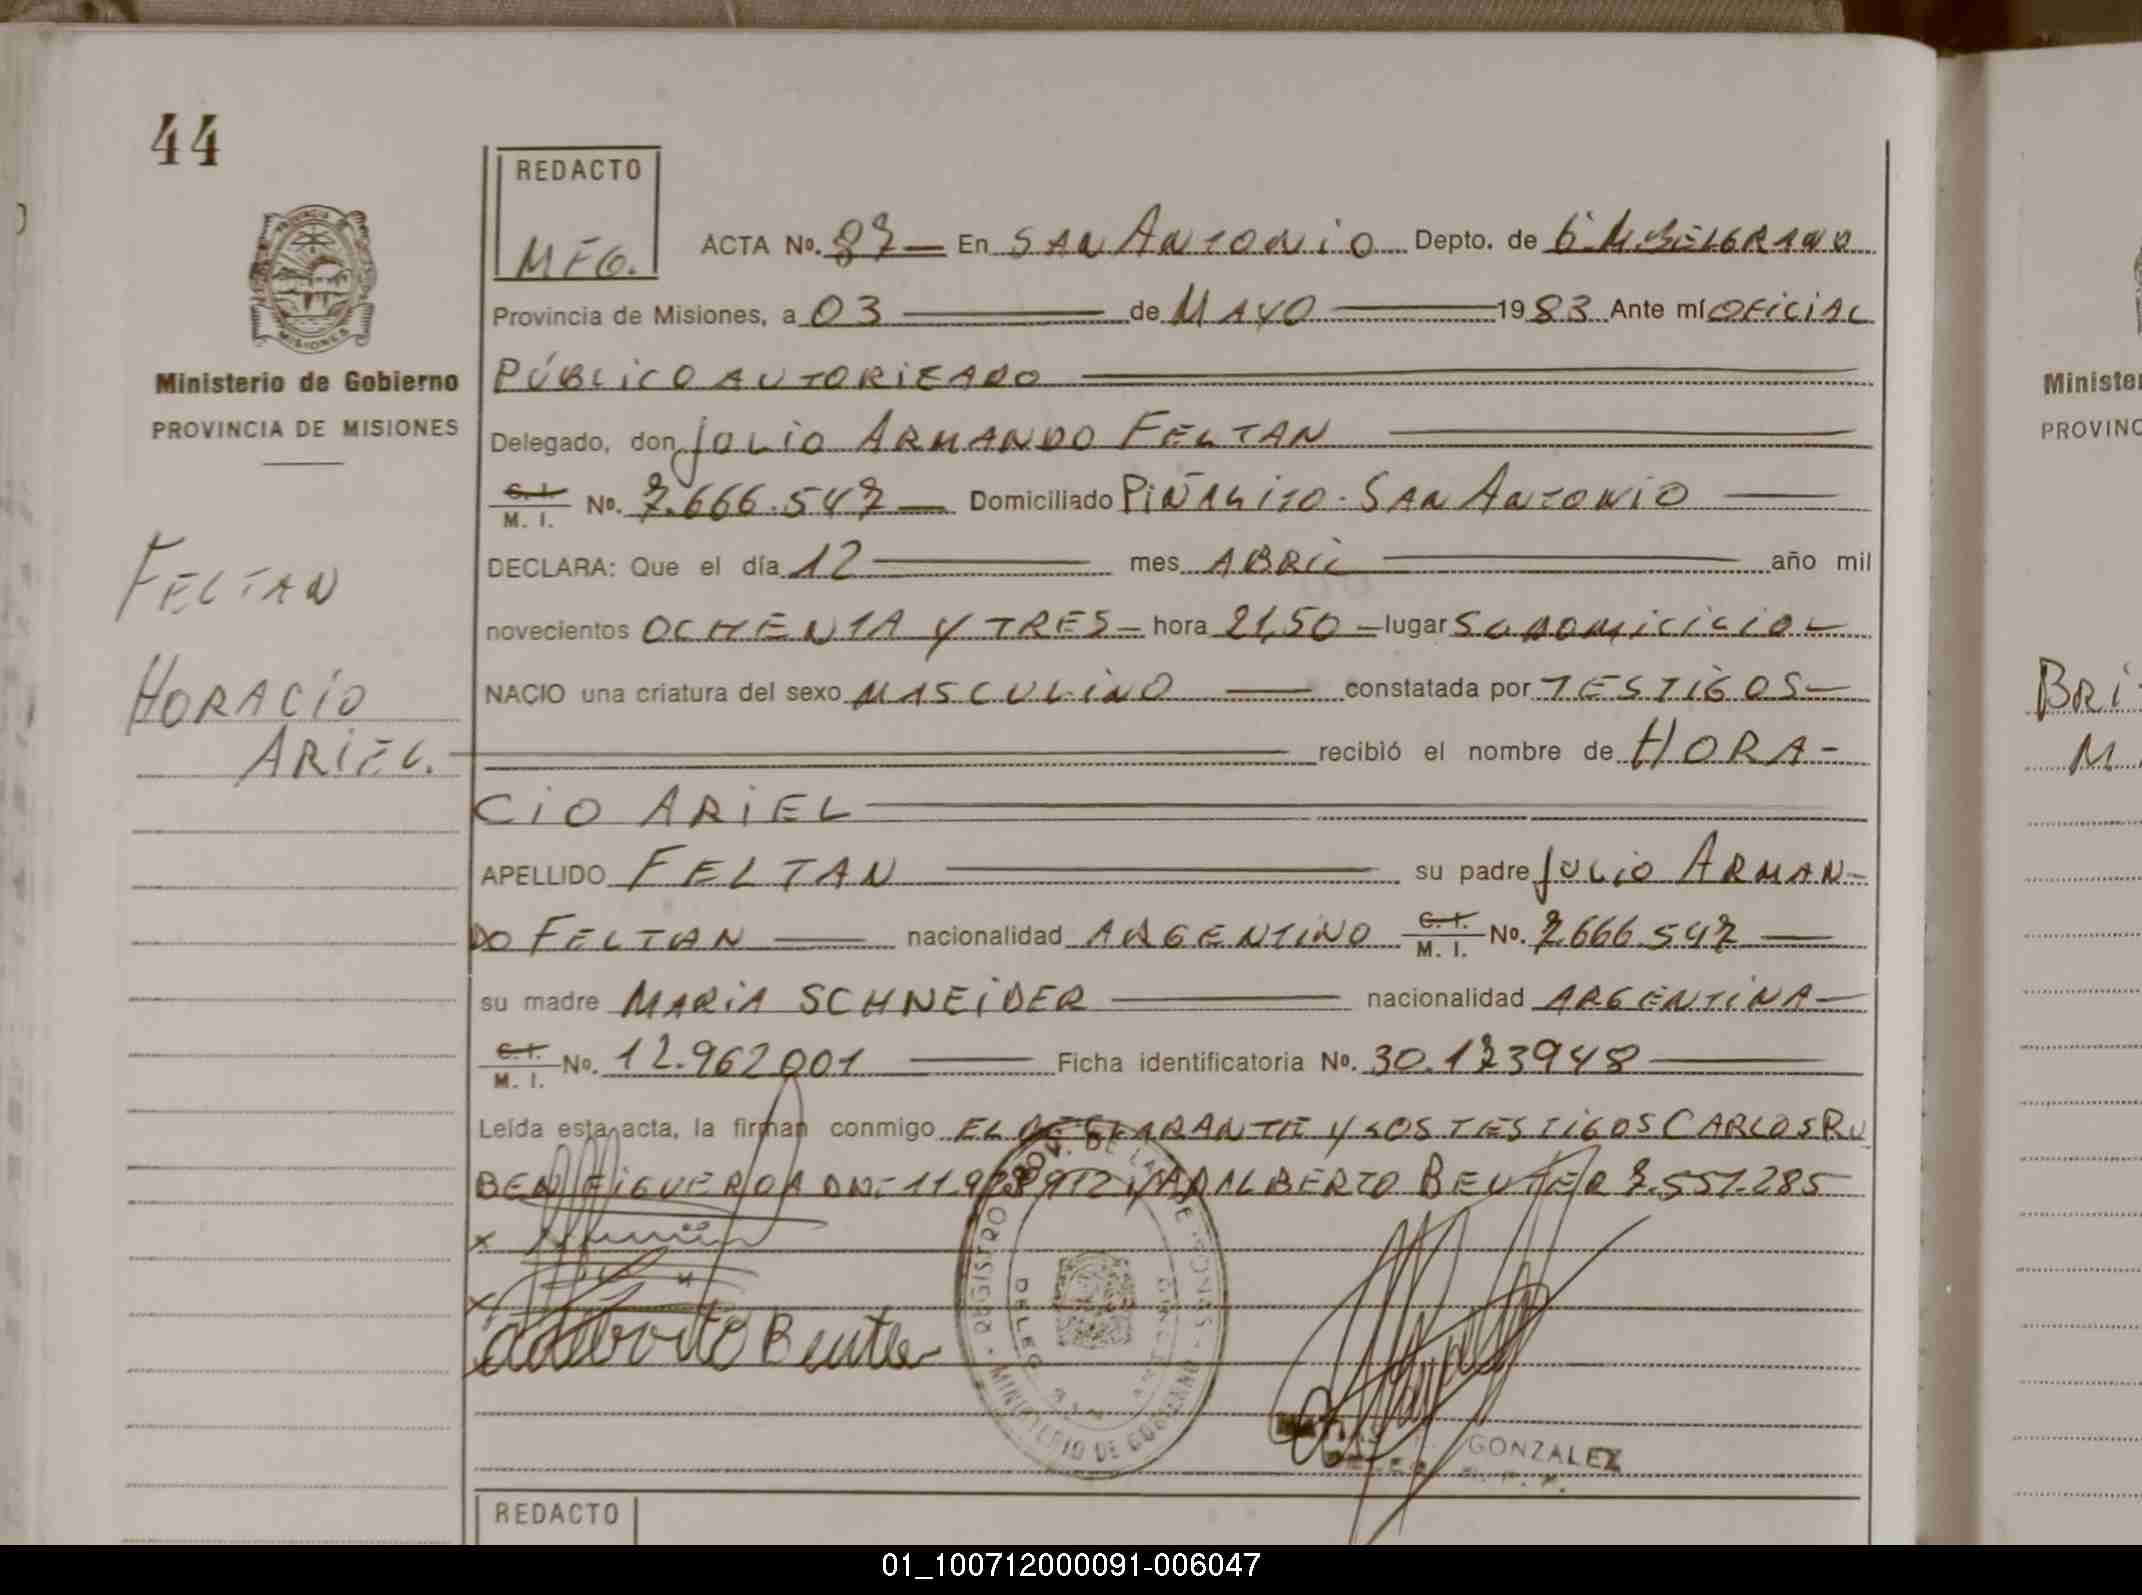 44
REDACTO
MFG.
ACTA No. 87 En SAN ANTONIO Depto. de G. M. BELGRANO
Provincia de Misiones, a 03 de MAYO 1983 Ante mí OFICIAL
PÚBLICO AUTORIZADO
Ministerio de Gobierno
PROVINCIA DE MISIONES
Delegado, don JULIO ARMANDO FELTAN
C. I. M. I. No. 7.666.547 Domiciliado PIÑALITO - SAN ANTONIO
DECLARA: Que el día 12 mes ABRIL año mil
novecientos OCHENTA Y TRES - hora 21,50 - lugar SU DOMICILIO
NACIO una criatura del sexo MASCULINO constatada por TESTIGOS
recibió el nombre de HORA-
CIO ARIEL
FELTAN
HORACIO
ARIEL.
APELLIDO FELTAN su padre JULIO ARMAN-
DO FELTAN nacionalidad ARGENTINO C. I. M. I. No. 7.666.547
su madre MARIA SCHNEIDER nacionalidad ARGENTINA
C. I. M. I. No. 12.962.001 Ficha identificatoria No. 30.123948
Leída esta acta, la firman conmigo EL DECLARANTE Y LOS TESTIGOS CARLOS RU
BEN FIGUEROA DNI Y ADALBERTO BEUTER 7.551.285
Adalberto Beuter
REGISTRO PROV. DE LAS PERSONAS - MINISTERIO DE GOBIERNO
DELEG. SAN ANTONIO
GONZALEZ
REDACTO
Minister
PROVINC
BRI
M
01_100712000091-006047